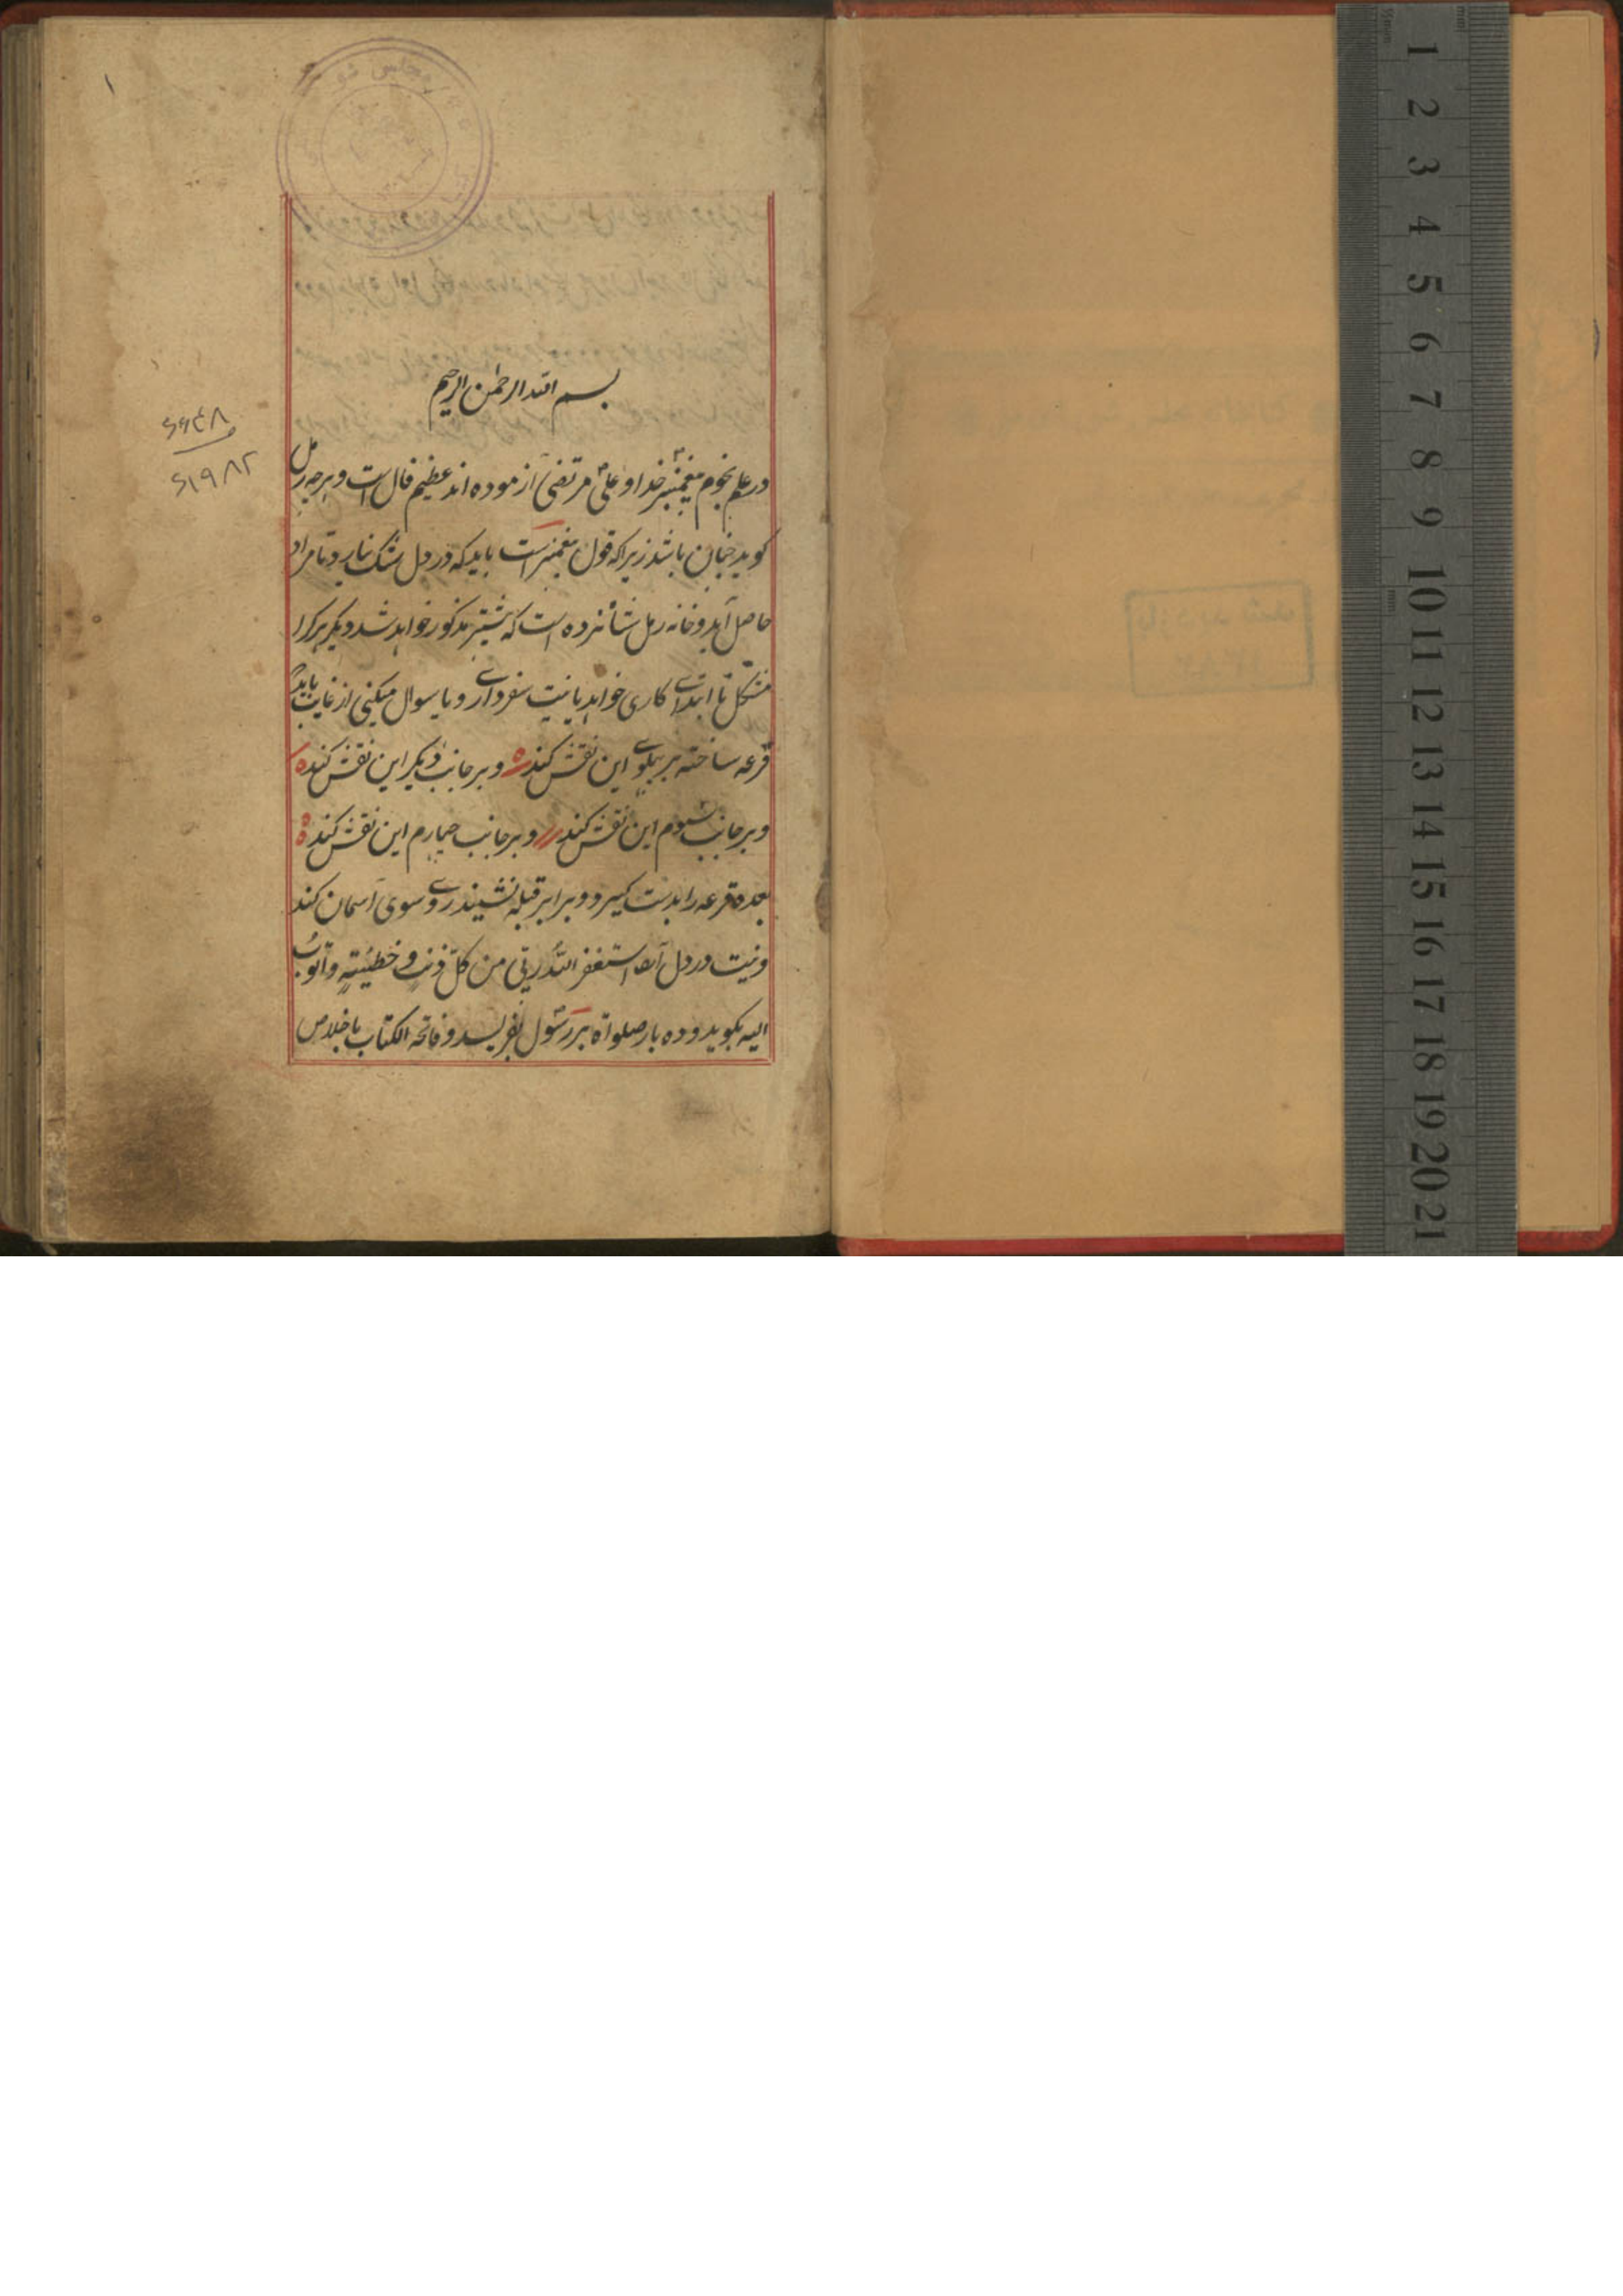 ۱
بسم الله الرحمن الرحیم
در علم نجوم پیغمبر خدا و علی مرتضی آزموده اند عظیم فال است و هر چه رمل
کوید چنان باشد زیرا که قول پیغمبر است باید که در دل شک نیارد تا مراد
حاصل آید و خانه رمل شانزده است که پیشتر مذکور خواهد شد دیکر هر کرا
مشکل تا ابتدای کاری خواهد یا نیت سفر دارد و یا سوال میکنی از غایب باید که
قرعه ساخته بر پهلوی این نقش کند و بر جانب دیکر این نقش کند
و بر جانب سیوم این نقش کند و بر جانب چهارم این نقش کند
بعده قرعه را بدست کیرد و برابر قبله نشیند روی سوی آسمان کند
و نیت در دل آرد استغفر الله ربی من کل ذنب و خطیئة و اتوب
الیه بکوید و ده بار صلواة بر رسول بفریسد و فاتحة الکتاب با خلاص
۶۶۴۸
۶۱۹۸۲
1 2 3 4 5 6 7 8 9 10 11 12 13 14 15 16 17 18 19 20 21